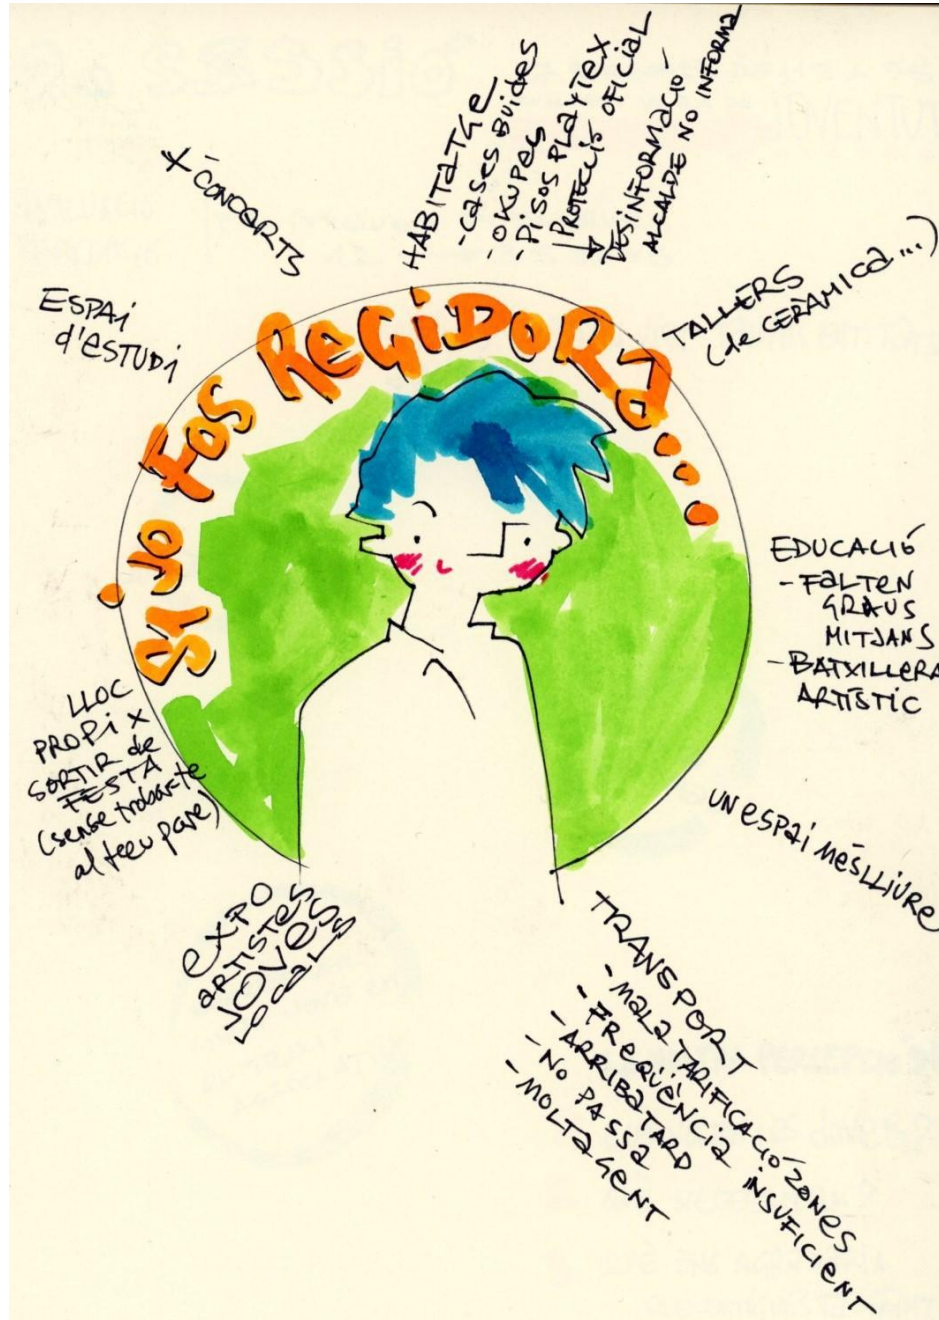 Si jo FOS REGIDORA...
+ CONCERTS
HABITATGE
- CASES BUIDES
- OKUPES
- PISOS PLAYTEX
↓ PROTECCIÓ OFICIAL
DESINFORMACIÓ -
ALCALDE NO INFORMA
TALLERS
(de CERÀMICA...)
EDUCACIÓ
- FALTEN
GRAUS
MITJANS
- BATXILLERA
ARTÍSTIC
UN ESPAI MÉS LLIURE
TRANSPORT
- MALA TARIFICACIÓ ZONES
- FREQÜÈNCIA INSUFICIENT
- ARRIBA TARD
- NO PASSA
- MOLTA GENT
EXPO
ARTISTES
JOVES
LOCALS
LLOC
PROPI X
SORTIR de
FESTA
(sense trobarte
al teu pare)
ESPAI
d'ESTUDI